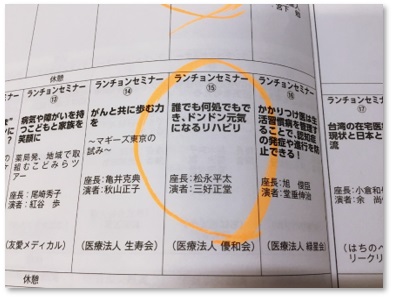 宮下 和
休憩
ランチョンセミナー
⑬
病気や障がいを持
つこどもと家族を
笑顔に
薬局発、地域で取
組むこどみらツ
ア
座長:尾崎秀子
演者:紅谷 歩
(友愛メディカル)
ランチョンセミナー
⑭
がんと共に歩む力
を
~マギーズ東京の
試み~
座長:亀井克典
演者:秋山正子
(医療法人 生寿会)
ランチョンセミナー
⑮
誰でも何処でもで
き、ドンドン元気
になるリハビリ
座長:松永平太
演者:三好正堂
(医療法人 優和会)
ランチョンセミナー
⑯
かかりつけ医は生
活習慣病を管理す
ることで、認知症
の発症や進行を防
止できる!
座長:旭 俊臣
演者:堂垂伸治
(医療法人 緑星会)
ランチョンセミナー
⑰
台湾の在宅医
現状と日本と
流
座長:小倉和
演者:余 尚
(はちのへ
リークリ
休憩